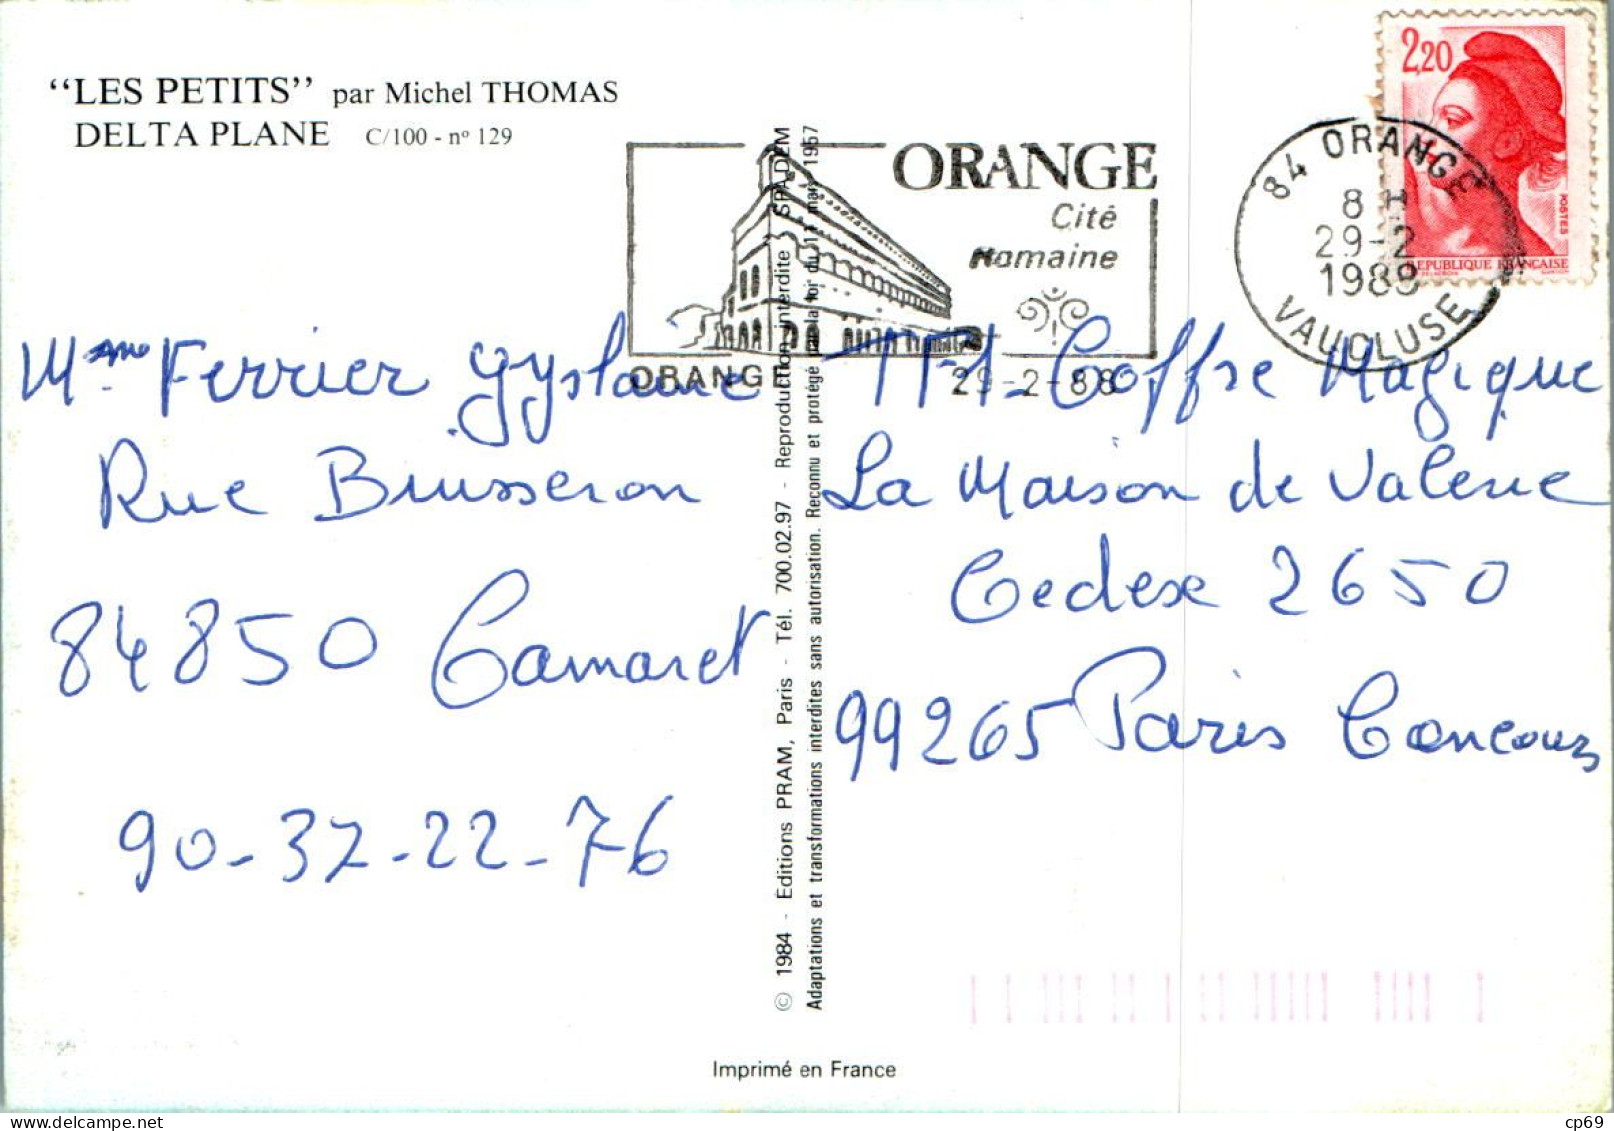 “LES PETITS” par Michel THOMAS
DELTA PLANE C/100 - nº 129
ORANGE
Cité
Romaine
ORANGE
29-2-88
84 ORANGE
8 H
29-2
1988
VAUCLUSE
2,20
POSTES
REPUBLIQUE FRANCAISE
Mme Ferrier Gyslaine
Rue Buisseron
84850 Camaret
90-37-22-76
TF1_Coffre Magique
La Maison de Valerie
Cedex 2650
99265 Paris Concours
© 1984 - Editions PRAM, Paris - Tél. 700.02.97 - Reproduction interdite SPADEM
Adaptations et transformations interdites sans autorisation. Reconnu et protégé par la loi du 11 mars 1957
Imprimé en France
cp69